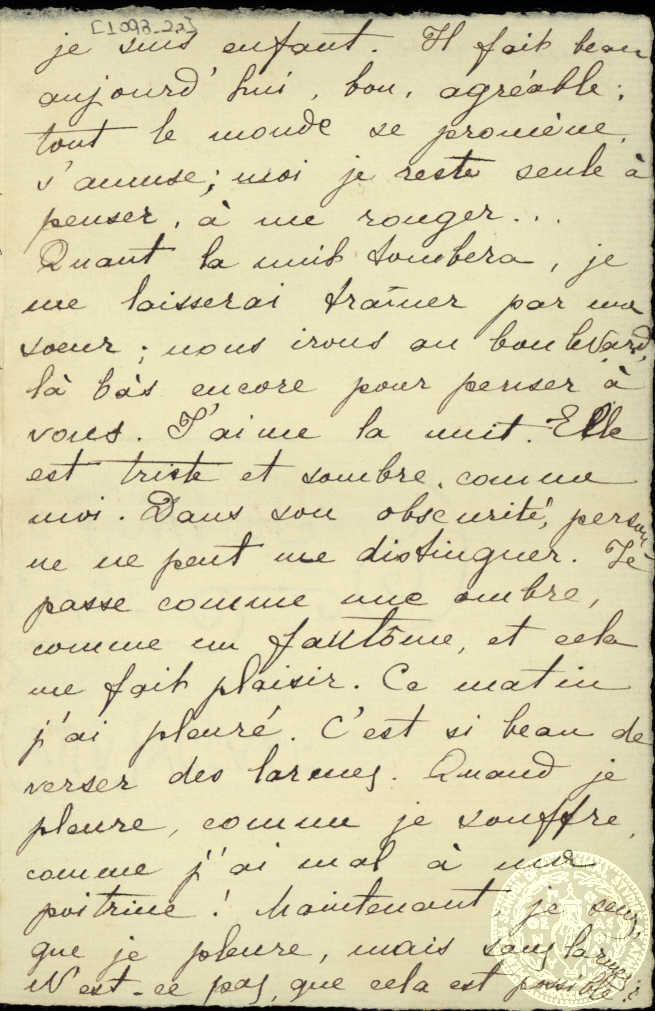 [1093-22]
je suis enfant. Il fait beau
aujourd'hui, bon, agréable;
tout le monde se promène,
s'amuse; moi je reste seule à
penser, à me ronger...
Quant la nuit tombera, je
me laisserai traîner par ma
soeur; nous irons au boulevard,
là bàs encore pour penser à
vous. J'aime la nuit. Elle
est triste et sombre, comme
moi. Dans son obscurité, person-
ne ne peut me distinguer. Je
passe comme une ombre,
comme un fantôme, et cela
me fait plaisir. Ce matin
j'ai pleuré. C'est si beau de
verser des larmes. Quand je
pleure, comme je souffre,
comme j'ai mal à ma
poitrine! Maintenant, je sens,
que je pleure, mais sans larmes.
N'est-ce pas, que cela est possible